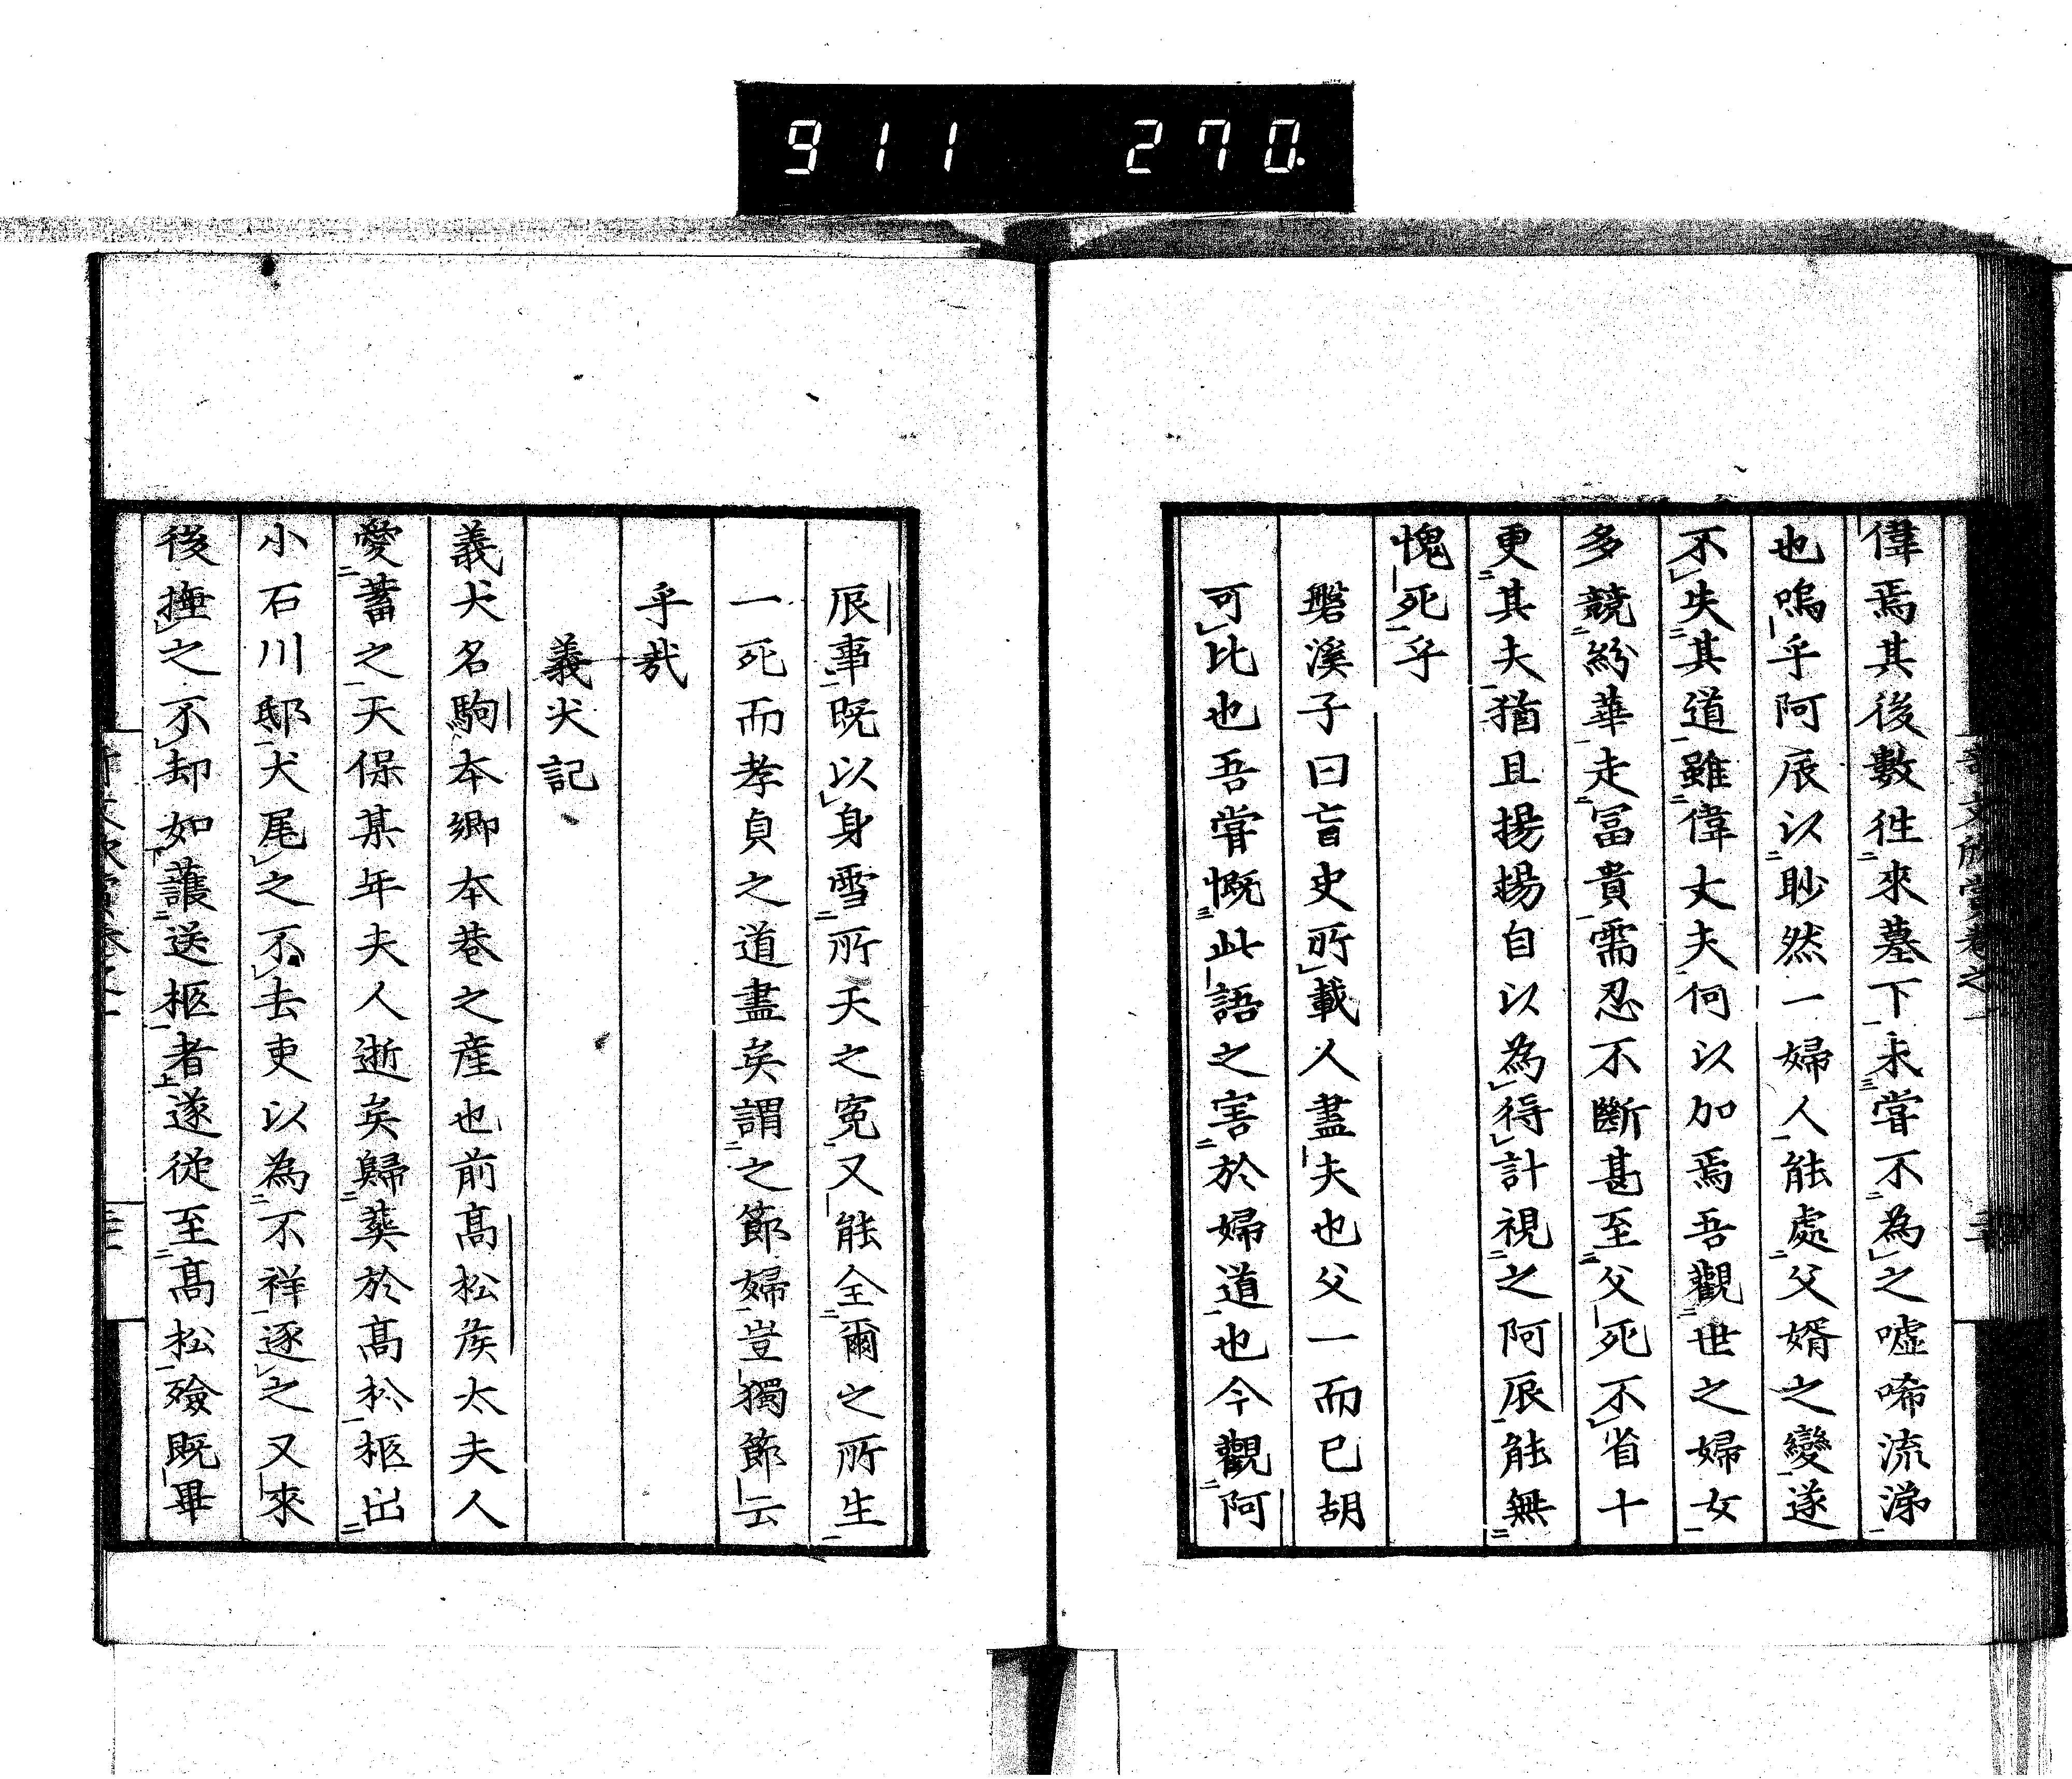 911 270.
偉焉其後數徃來墓下未嘗不為之噓唏流涕
也嗚乎阿辰以眇然一婦人能處父婿之變遂
不失其道雖偉丈夫何以加焉吾觀世之婦女
多競紛華走冨貴需忍不斷甚至父死不省十
更其夫猶且揚揚自以為得計視之阿辰能無
愧死乎
磐溪子曰盲史所載人盡夫也父一而已胡
可比也吾嘗慨此語之害於婦道也今觀阿
辰事既以身雪所天之冤又能全爾之所生
一死而孝貞之道盡矣謂之節婦豈獨節云
乎哉
義犬記
義犬名駒本鄉本巷之産也前髙松矦太夫人
愛蓄之天保某年夫人逝矣歸葬於髙松柩出
小石川邸犬尾之不去吏以為不祥逐之又來
後撫之不却如護送柩者遂從至髙松殮既畢